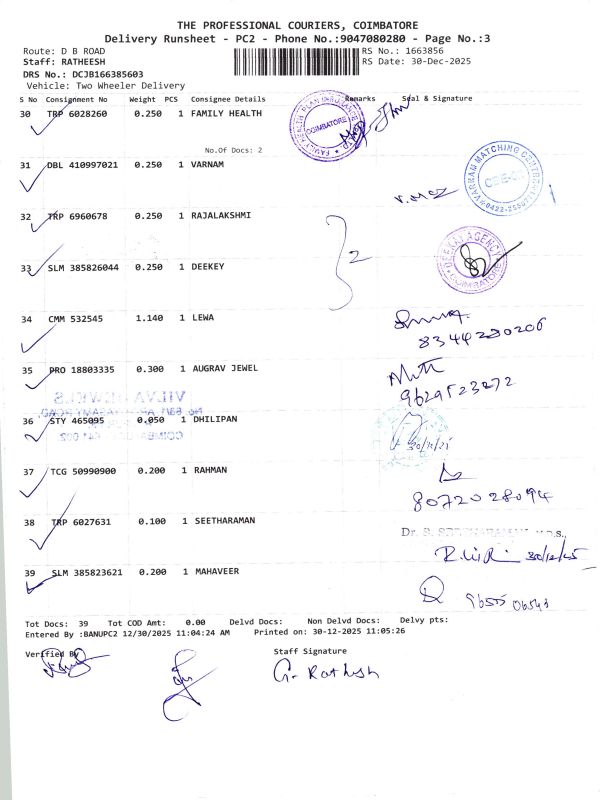 THE PROFESSIONAL COURIERS, COIMBATORE
Delivery Runsheet - PC2 - Phone No.:9047080280 - Page No.:3
Route: D B ROAD RS No.: 1663856
Staff: RATHEESH RS Date: 30-Dec-2025
DRS No.: DCJB166385603
Vehicle: Two Wheeler Delivery
S No Consignment No Weight PCS Consignee Details Remarks Seal & Signature
30 TRP 6028260 0.250 1 FAMILY HEALTH
COIMBATORE
No.Of Docs: 2
31 DBL 410997021 0.250 1 VARNAM
VARNAM MATCHING CENTRE
32 TRP 6960678 0.250 1 RAJALAKSHMI
2
33 SLM 385826044 0.250 1 DEEKEY
DEEKAY AGENCIES COIMBATORE
34 CMM 532545 1.140 1 LEWA
8344280206
35 PRO 18803335 0.300 1 AUGRAV JEWEL
9629523272
36 STY 465095 0.050 1 DHILIPAN
30/12/25
37 TCG 50990900 0.200 1 RAHMAN
8072028094
38 TRP 6027631 0.100 1 SEETHARAMAN
Dr. S. SEETHARAMAN
30/12/25
39 SLM 385823621 0.200 1 MAHAVEER
Tot Docs: 39 Tot COD Amt: 0.00 Delvd Docs: Non Delvd Docs: Delvy pts:
Entered By :BANUPC2 12/30/2025 11:04:24 AM Printed on: 30-12-2025 11:05:26
Verified By Staff Signature
G. Rathesh